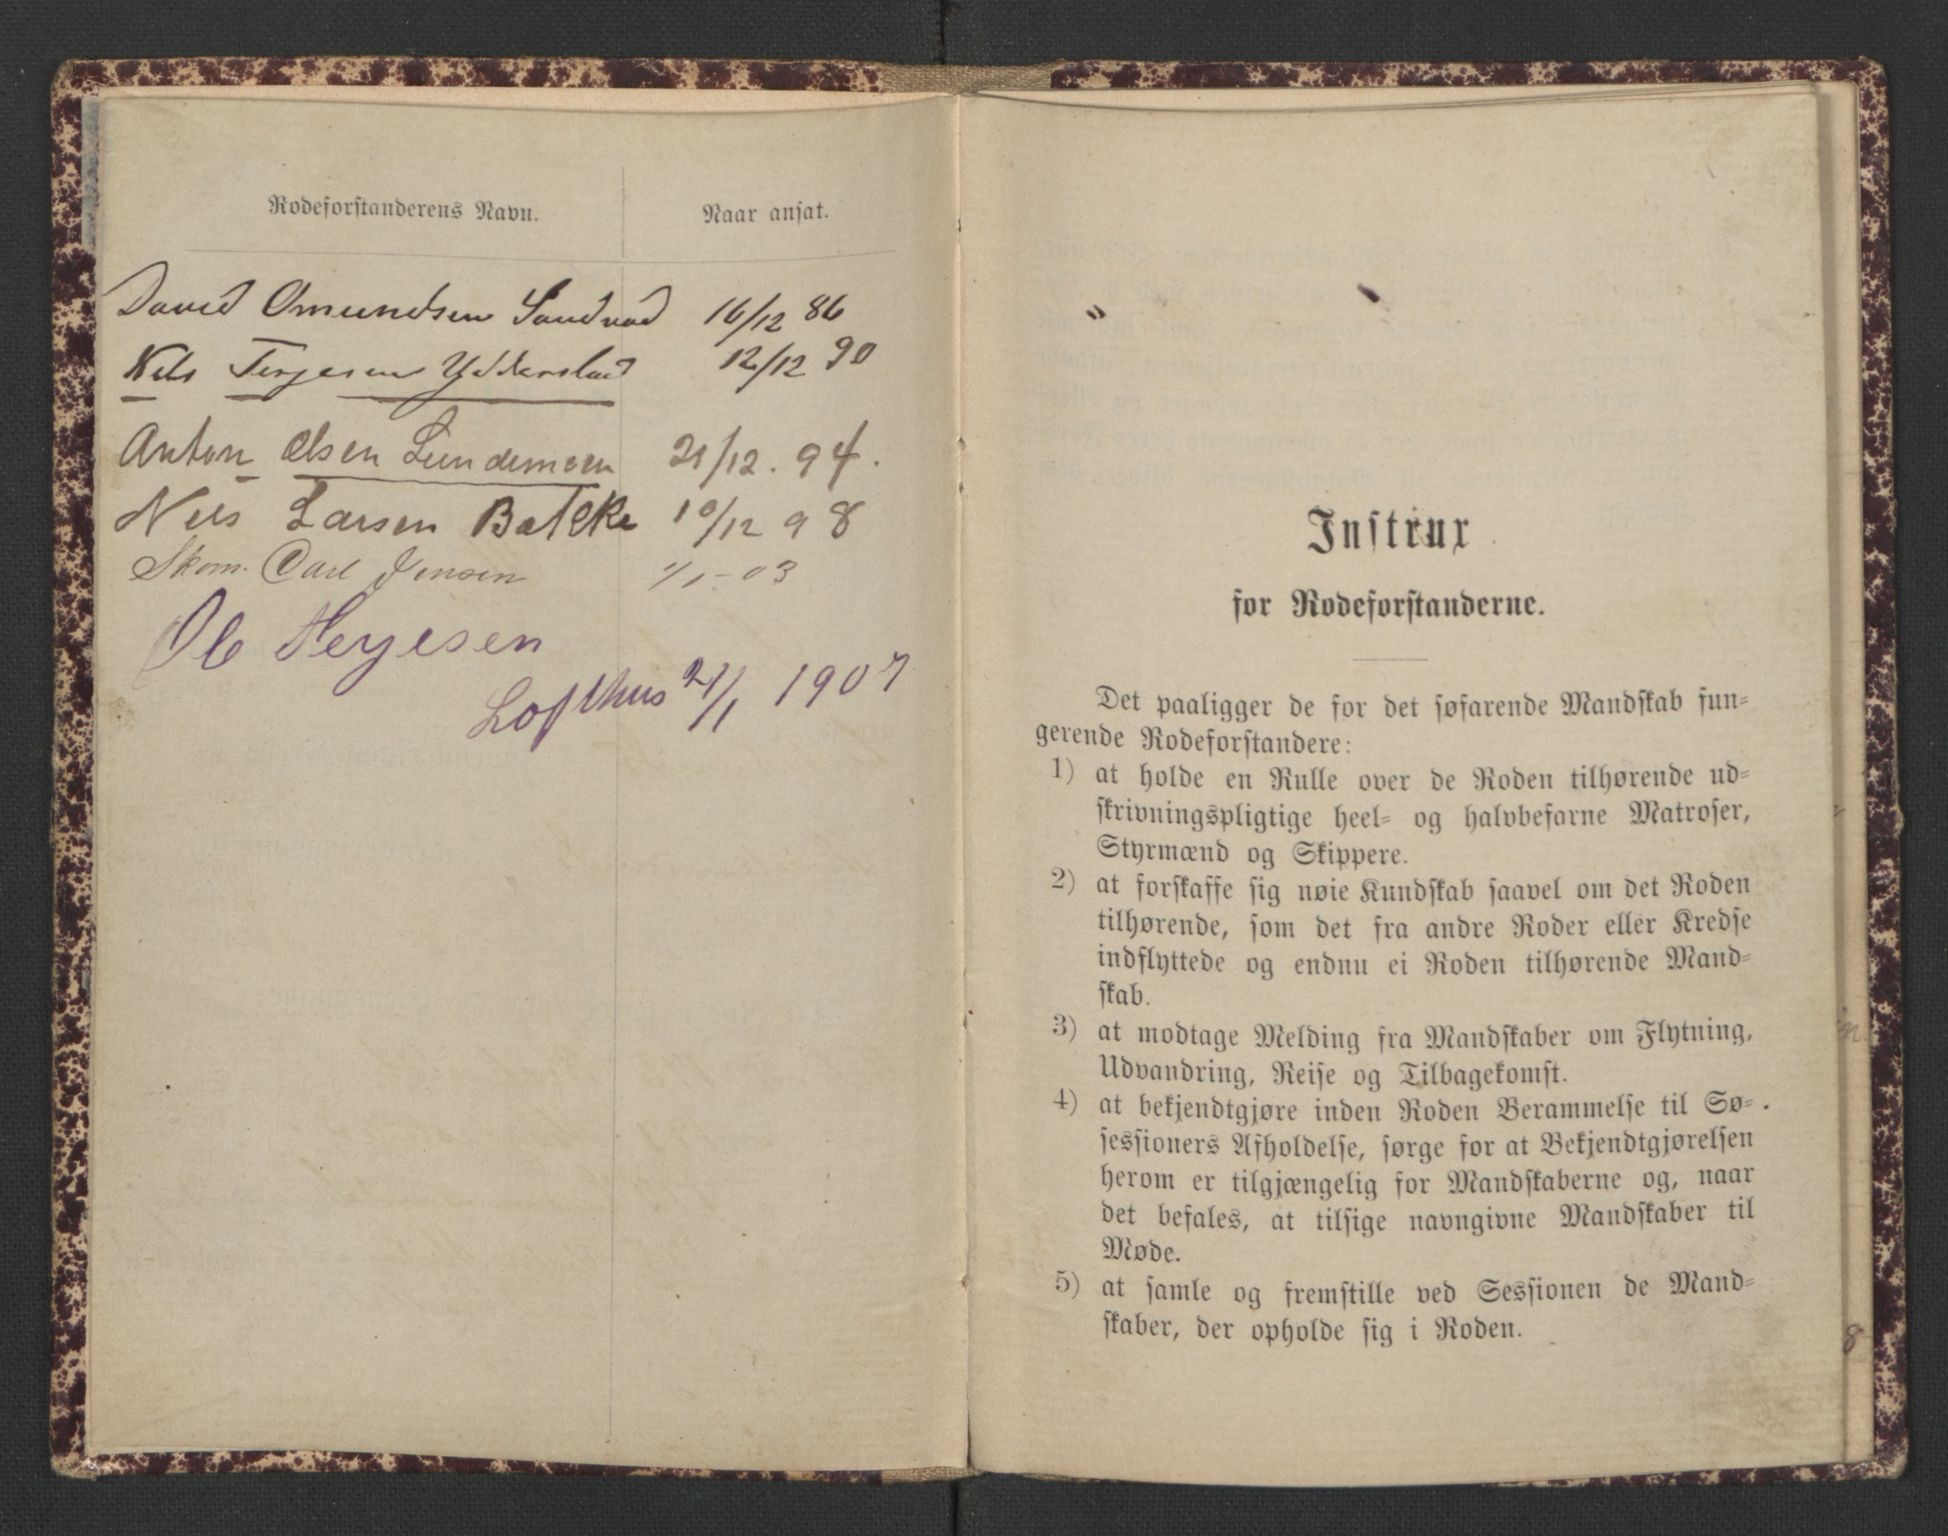 Rodeforstanderens Navn. Naar ansat.
David Omundsen Sandvad 16/12 86
Nils Terjesen 12/12 90
Anton Olsen Lundemoen 21/12. 94.
Nels Larsen Bakke 10/12 98
Skom. Carl Jensen 1/1-03
Ole Terjesen
Lofthus 21/1 1907
Instrux
for Rodeforstanderne.
Det paaligger de for det søfarende Mandskab fun-
gerende Rodeforstandere:
1) at holde en Rulle over de Roden tilhørende ud-
skrivningspligtige heel- og halvbefarne Matroser,
Styrmænd og Skippere.
2) at forskaffe sig nøie Kundskab saavel om det Roden
tilhørende, som det fra andre Roder eller Kredse
indflyttede og endnu ei Roden tilhørende Mand-
skab.
3) at modtage Melding fra Mandskaber om Flytning,
Udvandring, Reise og Tilbagekomst.
4) at bekjendtgjøre inden Roden Berammelse til Sø-
sessioners Afholdelse, sørge for at Bekjendtgjørelsen
herom er tilgjængelig for Mandskaberne og, naar
det befales, at tilsige navngivne Mandskaber til
Møde.
5) at samle og fremstille ved Sessionen de Mand-
skaber, der opholde sig i Roden.
8